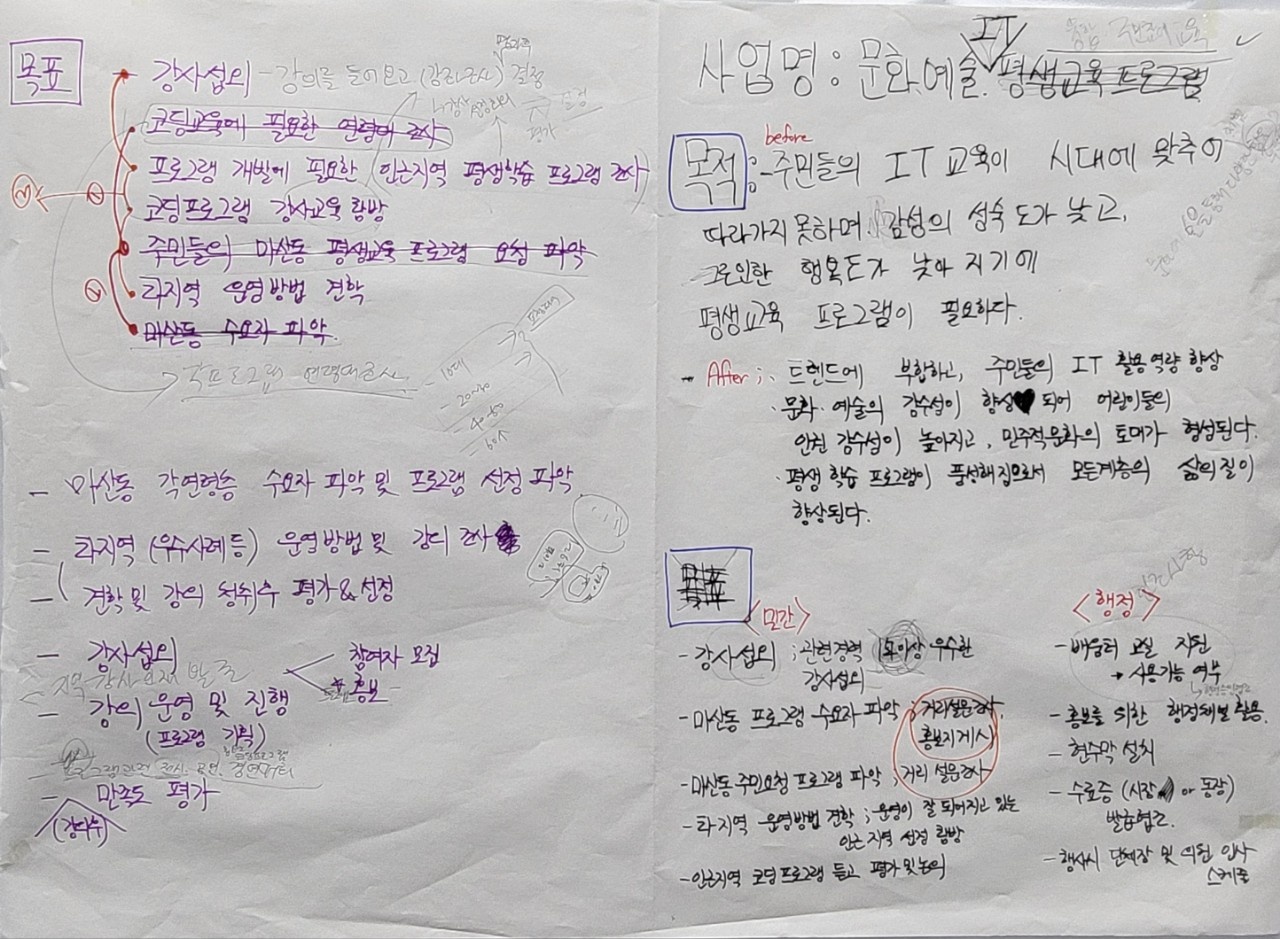 목표
강사섭의 - 강의를 들어보고 (강의조사) 결정
코딩교육에 필요한 연령대 조사
프로그램 개발에 필요한 인근지역 평생학습 프로그램 조사
코딩프로그램 강사교육 탐방
주민들의 마산동 평생교육 프로그램 요청 파악
타지역 운영방법 견학
마산동 수요자 파악
각프로그램 연령대조사
- 10대
- 20~30
- 40~50
- 60↑
- 마산동 각연령층 수요자 파악 및 프로그램 선정 파악
- 타지역 (우수사례 등) 운영방법 및 강의 조사
- 견학 및 강의 청취후 평가 & 선정
- 강사섭의
참여자 모집
홍보
- 강의 운영 및 진행
(프로그램 기획)
- 만족도 평가
(강의후)
IT
사업명 : 문화.예술. 평생교육 프로그램
before
목적 : - 주민들의 IT 교육이 시대에 맞추어
따라가지 못하며, 감성의 성숙도가 낮고,
그로인한 행복도가 낮아 지기에
평생교육 프로그램이 필요하다.
- After ; . 트렌드에 부합하고, 주민들의 IT 활용역량 향상
. 문화·예술의 감수성이 향상 되어 어린이들의
인권 감수성이 높아지고, 민주적문화의 토대가 형성된다.
. 평생 학습 프로그램이 풍성해짐으로서 모든계층의 삶의질이
향상된다.
<민간>
- 강사섭의 ; 관련경력 이상 우수한
강사섭의
- 마산동 프로그램 수요자 파악 ; 거리설문조사,
홍보지게시
- 마산동 주민요청 프로그램 파악 ; 거리 설문조사
- 타지역 운영방법 견학 ; 운영이 잘 되어지고 있는
인근지역 선정 탐방
- 인근지역 코딩프로그램 듣고 평가 및 논의
<행정>
- 배움터 교실 지원
→ 사용가능 여부
- 홍보를 위한 행정채널 활용.
- 현수막 설치
- 수료증 (시장 or 동장)
발급협조.
- 행사시 단체장 및 의원 인사
스케줄